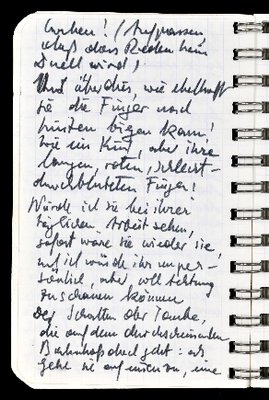 lachen! / Aufpassen,
daß das Reden kein
Duell wird!
Und überdies, wie ekelhaft
sie die Finger nach
hinten biegen kann!
wie ein Kind, aber ihre
langen, roten, schlecht-
durchbluteten Finger!
Würde ich sie bei ihrer
täglichen Arbeit sehen,
sofort wäre sie wieder "sie"
und ich würde ihr unper-
sönlich, aber voll Achtung
zuschauen können
Der Schatten der Taube,
die auf dem durchscheinenden
Bahnhofsdach geht: als
gehe sie auf einem zu, eine